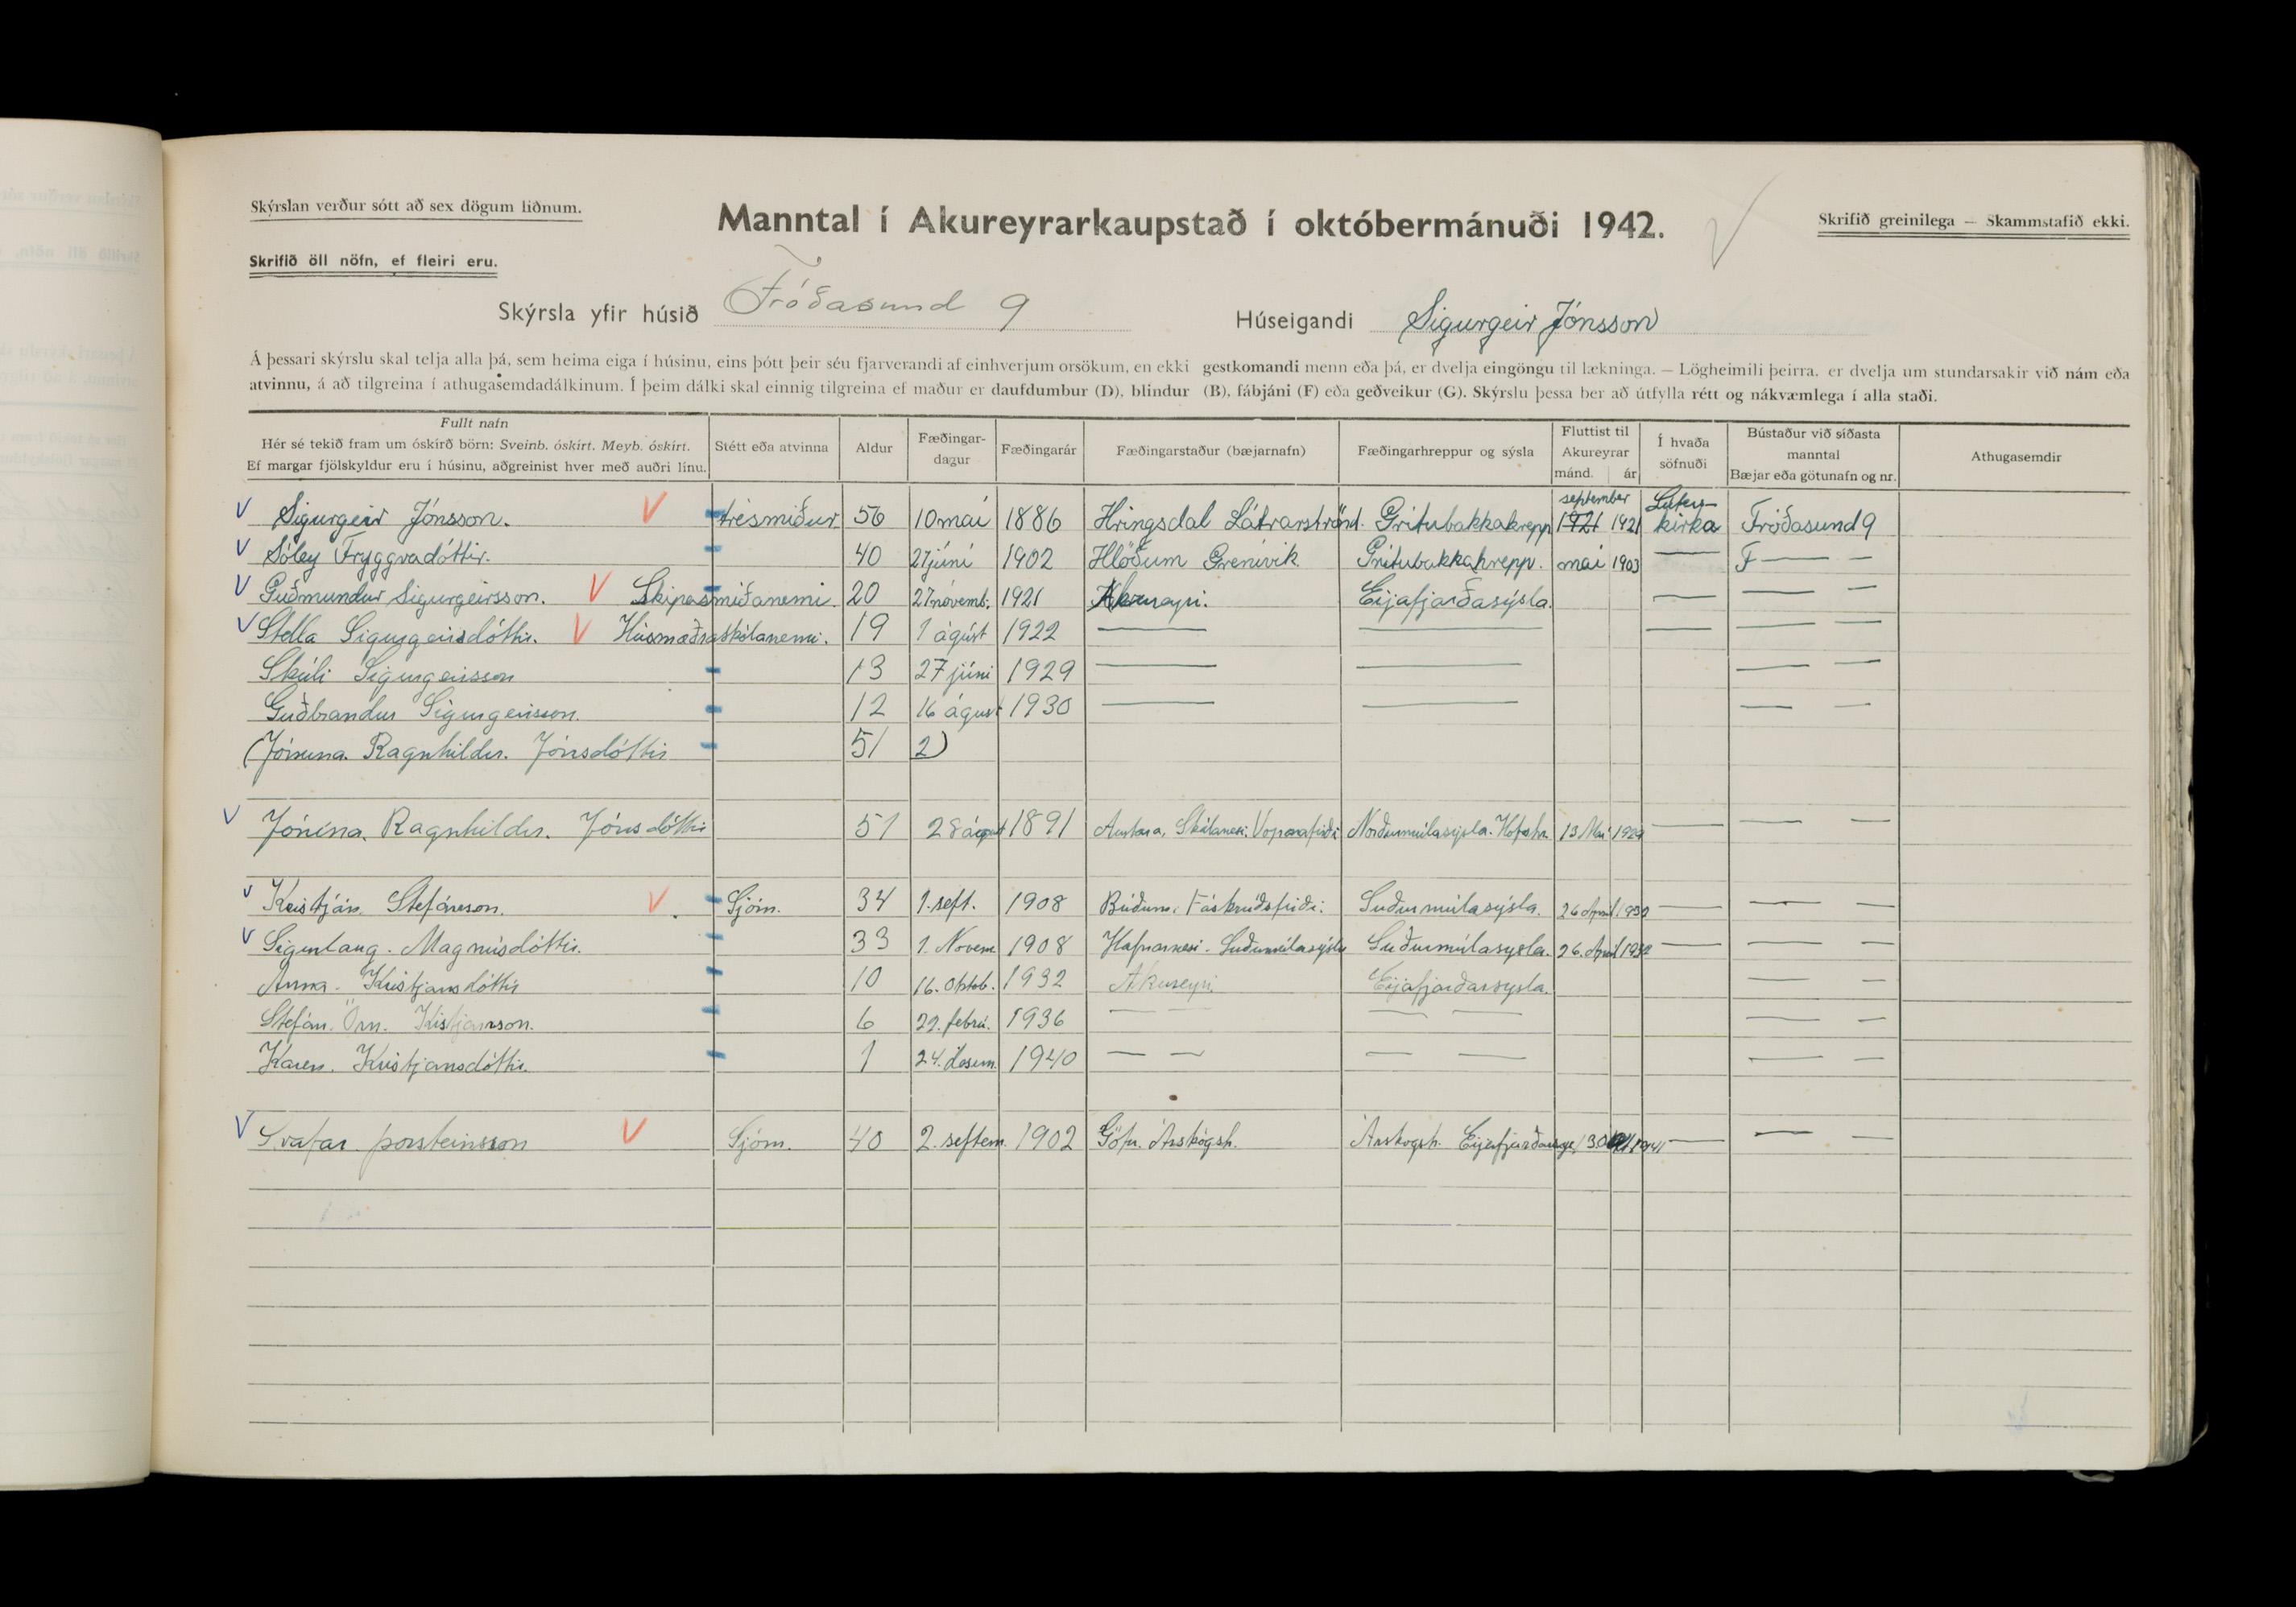 Skýrslan verður sótt að sex dögum liðnum.
Manntal í Akureyrarkaupstað í októbermánuði 1942.
Skrifið greinilega — Skammstafið ekki.
Skrifið öll nöfn, ef fleiri eru.
Skýrsla yfir húsið Fróðasund 9 Húseigandi Sigurgeir Jónsson
Á þessari skýrslu skal telja alla þá, sem heima eiga í húsinu, eins þótt þeir séu fjarverandi af einhverjum orsökum, en ekki gestkomandi menn eða þá, er dvelja eingöngu til lækninga. — Lögheimili þeirra, er dvelja um stundarsakir við nám eða
atvinnu, á að tilgreina í athugasemdadálkinum. Í þeim dálki skal einnig tilgreina ef maður er daufdumbur (D), blindur (B), fábjáni (F) eða geðveikur (G). Skýrslu þessa ber að útfylla rétt og nákvæmlega í alla staði.
Fullt nafn
Hér sé tekið fram um óskírð börn: Sveinb. óskírt. Meyb. óskírt.
Ef margar fjölskyldur eru í húsinu, aðgreinist hver með auðri línu.
Stétt eða atvinna
Aldur
Fæðingar-
dagur
Fæðingarár
Fæðingarstaður (bæjarnafn)
Fæðingarhreppur og sýsla
Fluttist til
Akureyrar
mánd. ár
Í hvaða
söfnuði
Bústaður við síðasta
manntal
Bæjar eða götunafn og nr.
Athugasemdir
V Sigurgeir Jónsson. V trésmiður 56 10 maí 1886 Hringsdal Látraströnd. Grítubakkahrepp september 1921 1921 kirka Fróðasund 9
V Sóley Tryggvadóttir. 40 27 júní 1902 Hlöðum Grenivik. Grítubakkahrepp. maí 1903 — F — —
V Guðmundur Sigurgeirsson. V Skipasmiðanemi. 20 27 novemb. 1921 Akureyri. Eyjafjarðasýsla. — — —
V Stella Sigurgeirsdóttir. V Húsmæðraskólanemi. 19 1 ágúst 1922 — — — — —
Skúli Sigurgeirsson 13 27 júni 1929 — — — —
Guðbrandur Sigurgeirsson. 12 16 ágúst 1930 — — — —
(Jónína. Ragnhildur. Jónsdóttir 51 2)
V Jónína. Ragnhildur. Jónsdóttir 51 28 ágúst 1891 Skálanesi. Vopnafirði Norðurmúlasýsla. Hofshr. 13 Mai 1929 — — —
V Kristján. Stefánsson. V. Sjóm. 34 1. sept. 1908 Búðum. Fáskrúðsfirði. Suðurmúlasýsla. 26 April 1932 — — —
V Sigurlaug. Magnúsdóttir. 33 1. Novem 1908 Hafnarnesi. Suðurmúlasýslu Suðurmúlasysla. 26. April 1932 — — —
Anna. Kristjansdóttir 10 16. Oktob. 1932 Akureyri. Eyjafjarðarsysla. — —
Stefán. Örn. Kristjansson. 6 29. febrú. 1936 — — — — — —
Karen. Kristjansdóttir. 1 24. desem. 1940 — — — — — —
V Svafar þorsteinsson V Sjóm. 40 2. septem. 1902 Árskógsh. Árskogsh. 1941 — — —